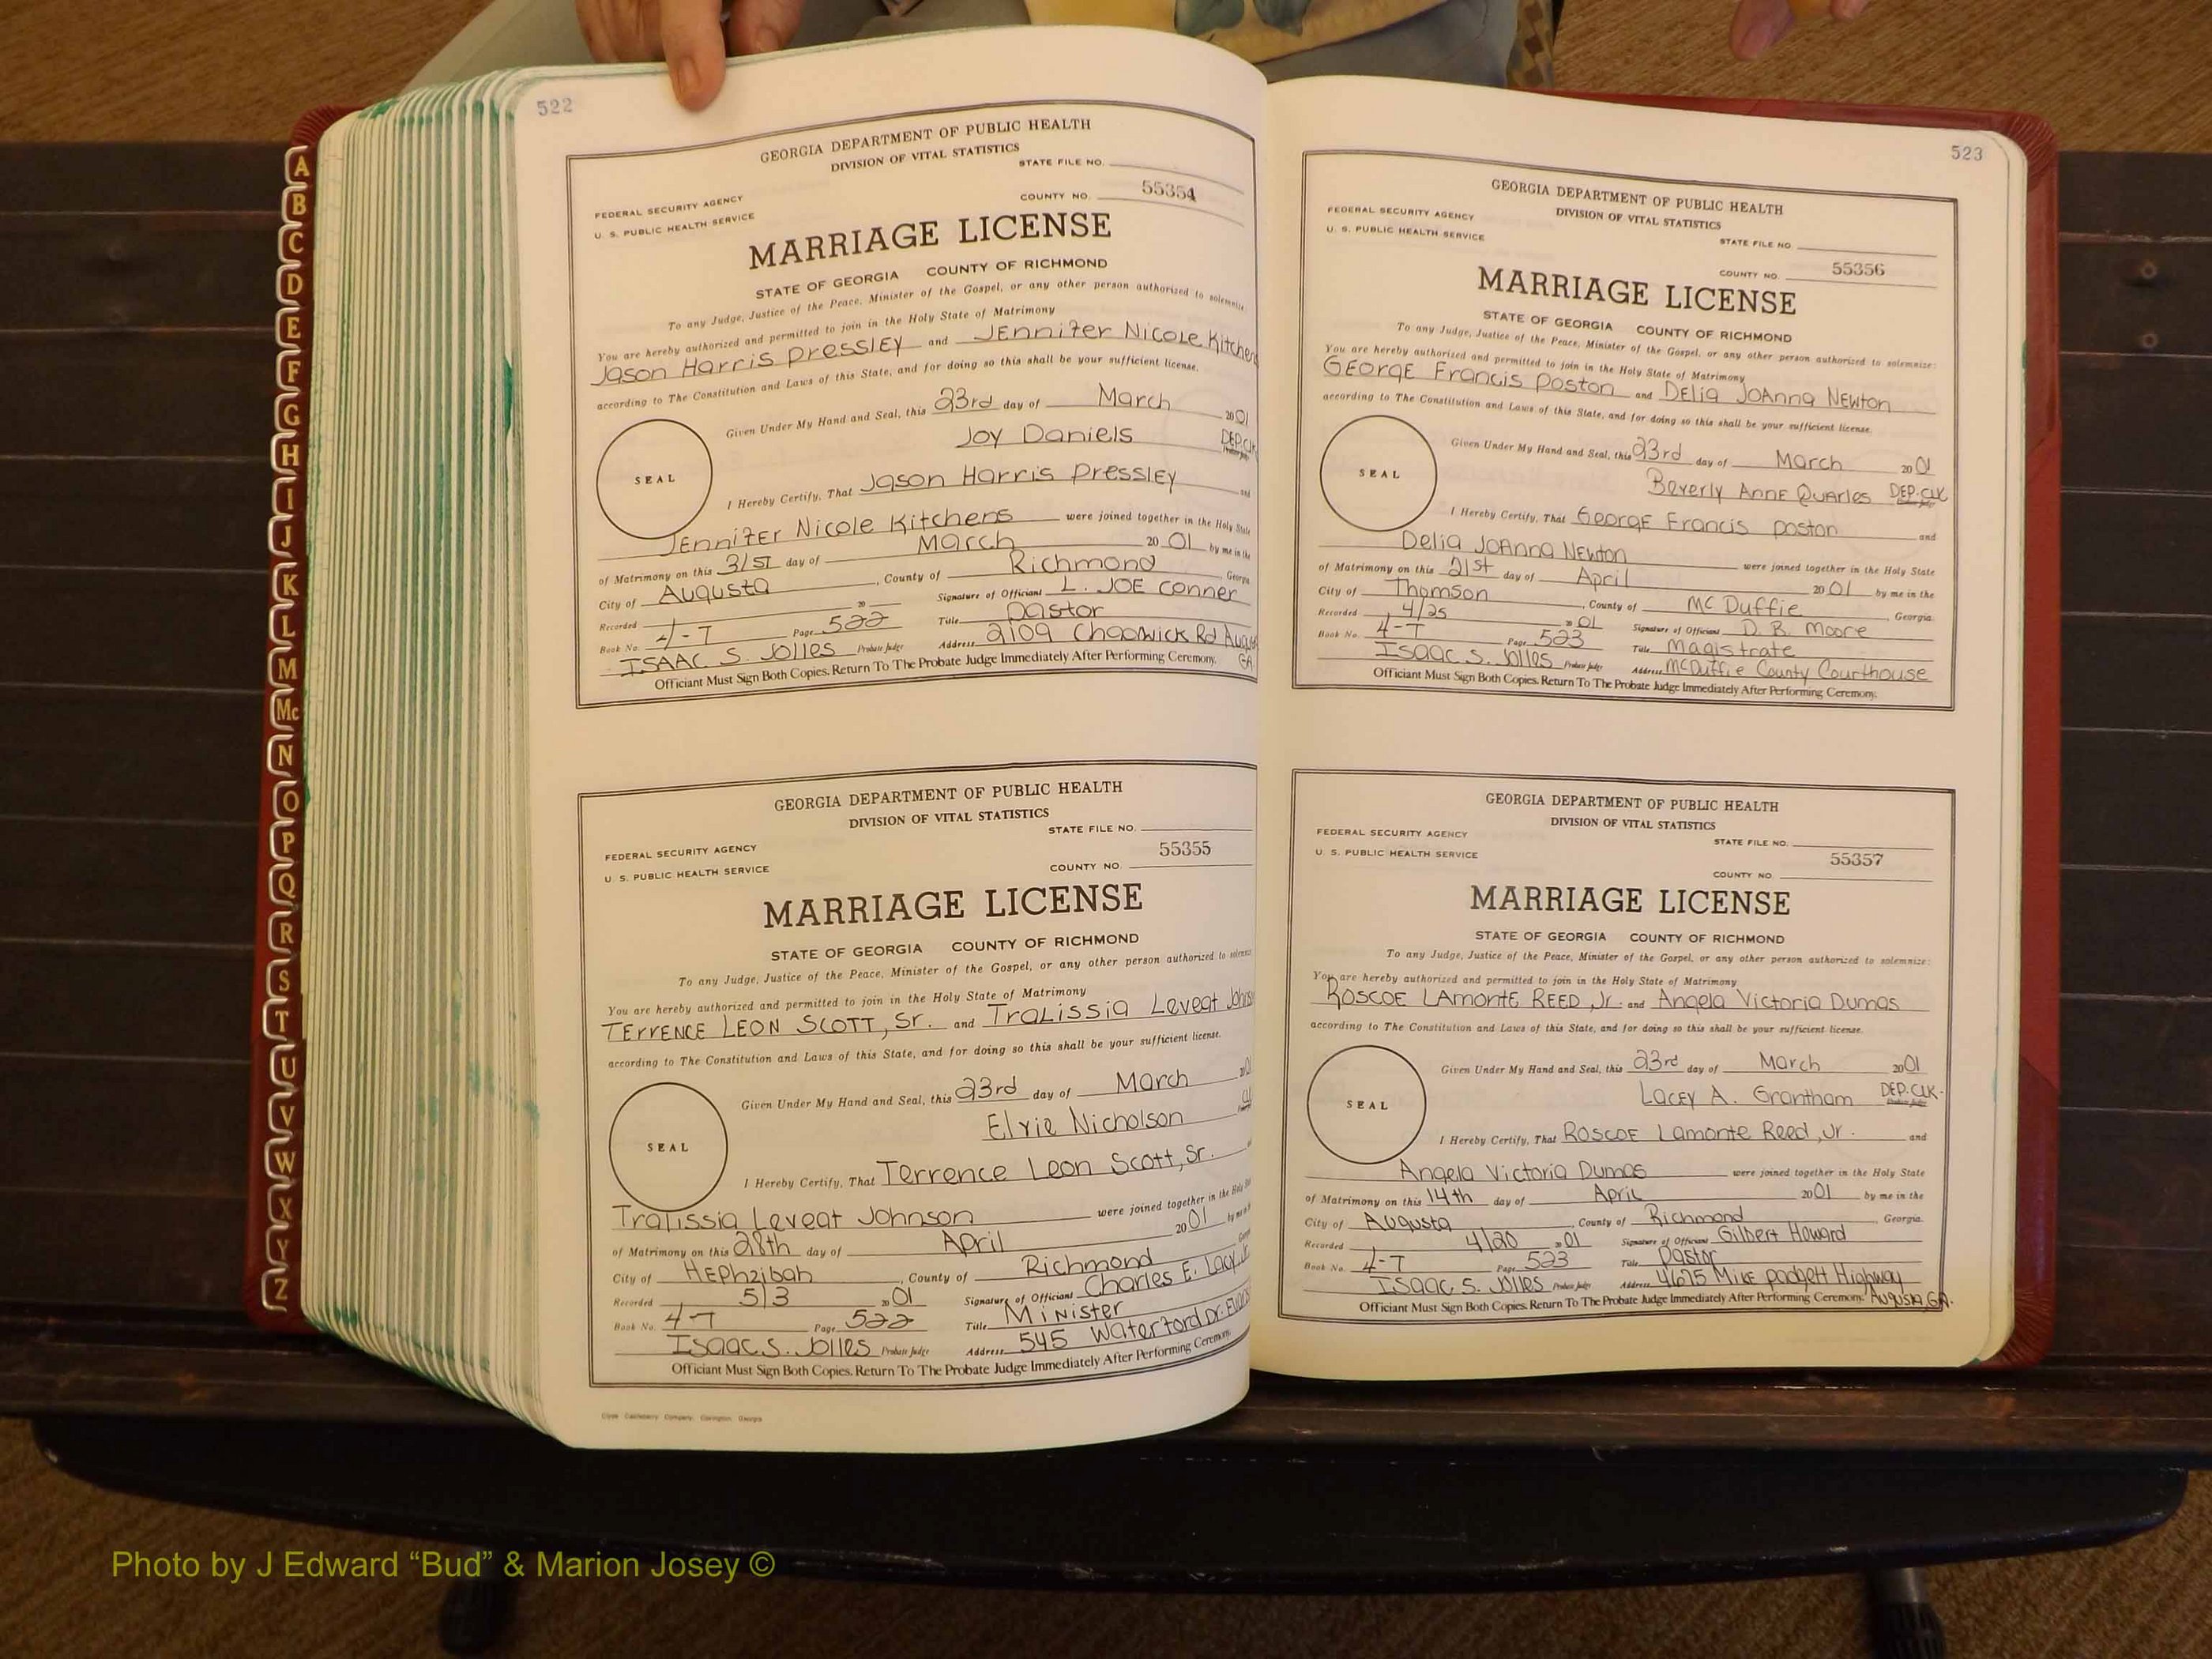 522
GEORGIA DEPARTMENT OF PUBLIC HEALTH
DIVISION OF VITAL STATISTICS
STATE FILE NO.
FEDERAL SECURITY AGENCY
U. S. PUBLIC HEALTH SERVICE
COUNTY NO. 55354
MARRIAGE LICENSE
STATE OF GEORGIA COUNTY OF RICHMOND
To any Judge, Justice of the Peace, Minister of the Gospel, or any other person authorized to solemnize
You are hereby authorized and permitted to join in the Holy State of Matrimony
Jason Harris Pressley and Jennifer Nicole Kitchens
according to The Constitution and Laws of this State, and for doing so this shall be your sufficient license.
Given Under My Hand and Seal, this 23rd day of March 2001
Joy Daniels DEP. Clk
SEAL
I Hereby Certify, That Jason Harris Pressley and
Jennifer Nicole Kitchens were joined together in the Holy State
of Matrimony on this 31st day of March 20 01 by me in the
City of Augusta, County of Richmond Georgia
Recorded 20 Signature of Officiant L. Joe Conner
Book No. 4-T Page 522 Title Pastor
Isaac S. Jolles Probate Judge Address 2109 Chadwick Rd Augusta GA
Officiant Must Sign Both Copies. Return To The Probate Judge Immediately After Performing Ceremony.
GEORGIA DEPARTMENT OF PUBLIC HEALTH
DIVISION OF VITAL STATISTICS
STATE FILE NO.
FEDERAL SECURITY AGENCY
U. S. PUBLIC HEALTH SERVICE
55355
COUNTY NO.
MARRIAGE LICENSE
STATE OF GEORGIA COUNTY OF RICHMOND
To any Judge, Justice of the Peace, Minister of the Gospel, or any other person authorized to
You are hereby authorized and permitted to join in the Holy State of Matrimony
Terrence Leon Scott, Sr. and Tralissia Leveat Johnson
according to The Constitution and Laws of this State, and for doing so this shall be your sufficient license.
Given Under My Hand and Seal, this 23rd day of March 2001
Elvie Nicholson
SEAL
I Hereby Certify, That Terrence Leon Scott, Sr.
Tralissia Leveat Johnson were joined together in the Holy
of Matrimony on this 28th day of April 20 01 by me
City of Hephzibah, County of Richmond
Recorded 5/3 20 01 Signature of Officiant Charles E. Lacy, Jr.
Book No. 4-T Page 522 Title Minister
Isaac S. Jolles Probate Judge Address 545 Waterford Dr. Evans
Officiant Must Sign Both Copies. Return To The Probate Judge Immediately After Performing Ceremony.
523
GEORGIA DEPARTMENT OF PUBLIC HEALTH
DIVISION OF VITAL STATISTICS
FEDERAL SECURITY AGENCY
U. S. PUBLIC HEALTH SERVICE
STATE FILE NO.
COUNTY NO. 55356
MARRIAGE LICENSE
STATE OF GEORGIA COUNTY OF RICHMOND
To any Judge, Justice of the Peace, Minister of the Gospel, or any other person authorized to solemnize:
You are hereby authorized and permitted to join in the Holy State of Matrimony
George Francis Poston and Delia JoAnna Newton
according to The Constitution and Laws of this State, and for doing so this shall be your sufficient license.
Given Under My Hand and Seal, this 23rd day of March 20 01
Beverly Anne Quarles DEP. CLK
SEAL
I Hereby Certify, That George Francis Poston and
Delia JoAnna Newton were joined together in the Holy State
of Matrimony on this 21st day of April 20 01 by me in the
City of Thomson, County of McDuffie Georgia.
Recorded 4/25 20 01 Signature of Officiant D. R. Moore
Book No. 4-T Page 523 Title Magistrate
Isaac S. Jolles Probate Judge Address McDuffie County Courthouse
Officiant Must Sign Both Copies. Return To The Probate Judge Immediately After Performing Ceremony.
GEORGIA DEPARTMENT OF PUBLIC HEALTH
DIVISION OF VITAL STATISTICS
FEDERAL SECURITY AGENCY
U. S. PUBLIC HEALTH SERVICE
STATE FILE NO.
55357
COUNTY NO.
MARRIAGE LICENSE
STATE OF GEORGIA COUNTY OF RICHMOND
To any Judge, Justice of the Peace, Minister of the Gospel, or any other person authorized to solemnize:
You are hereby authorized and permitted to join in the Holy State of Matrimony
Roscoe Lamonte Reed, Jr. and Angela Victoria Dumas
according to The Constitution and Laws of this State, and for doing so this shall be your sufficient license.
Given Under My Hand and Seal, this 23rd day of March 2001
Lacey A. Grantham DEP. CLK.
SEAL
I Hereby Certify, That Roscoe Lamonte Reed, Jr. and
Angela Victoria Dumas were joined together in the Holy State
of Matrimony on this 14th day of April 2001 by me in the
City of Augusta, County of Richmond Georgia.
Recorded 4/20 20 01 Signature of Officiant Gilbert Howard
Book No. 4-T Page 523 Title Pastor
Isaac S. Jolles Probate Judge Address 4675 Mike Padgett Highway
Officiant Must Sign Both Copies. Return To The Probate Judge Immediately After Performing Ceremony. Augusta, GA.
A
B
C
D
E
F
G
H
I
J
K
L
M
Mc
N
O
P
Q
R
S
T
U
V
W
X
Y
Z
Photo by J Edward “Bud” & Marion Josey ©